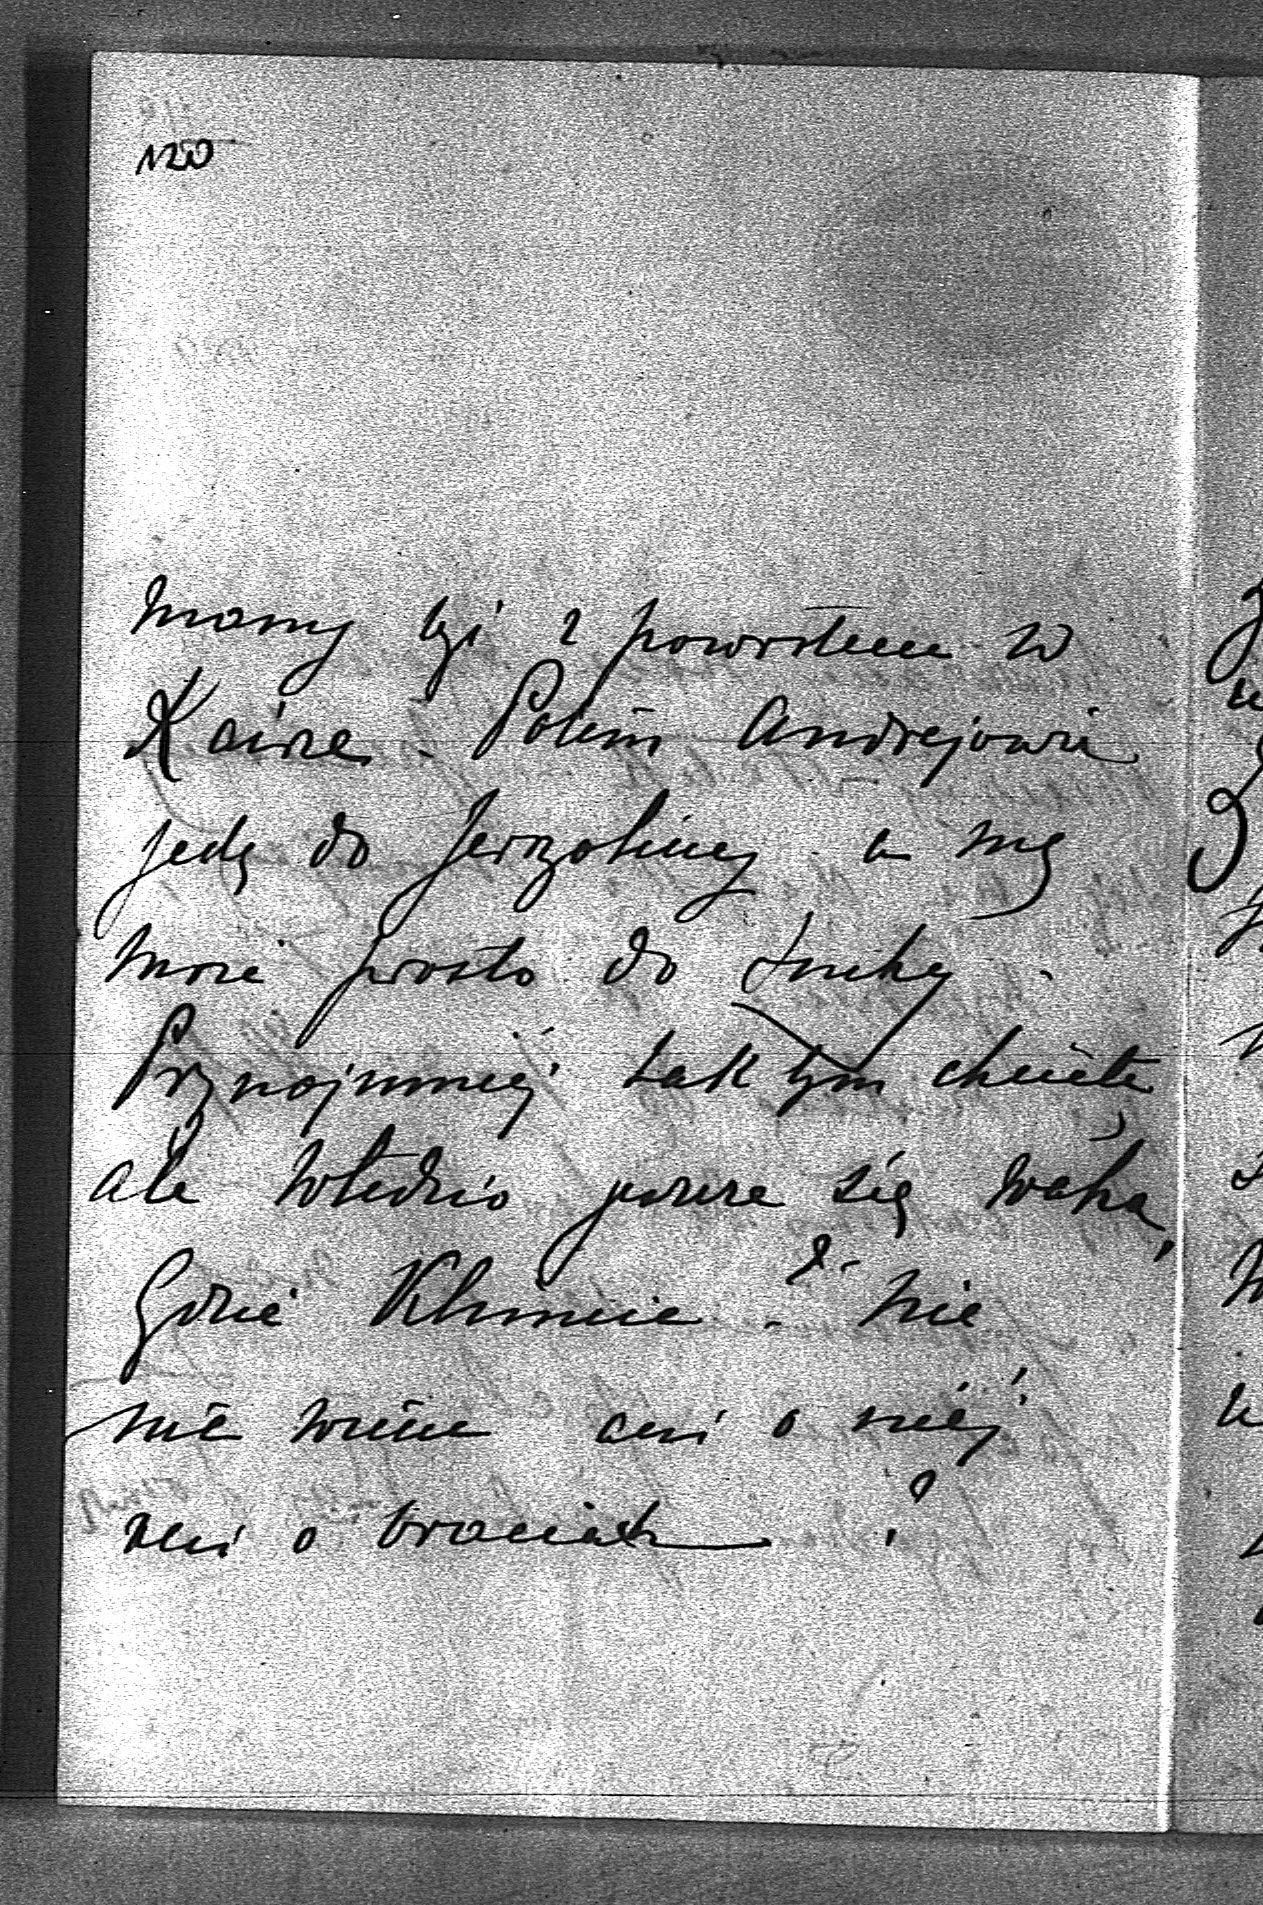 1220
mamy być z powrotem w
Kairze. Potem Andrejowie
jedą do Jerozolimy a my
może prosto do Suchy.
Przynajmniej tak bym chciała
ale Władzio jeszcze się waha,
Gdzie Klimcie? Nic
nie wiem ani o niej
ani o braciach?